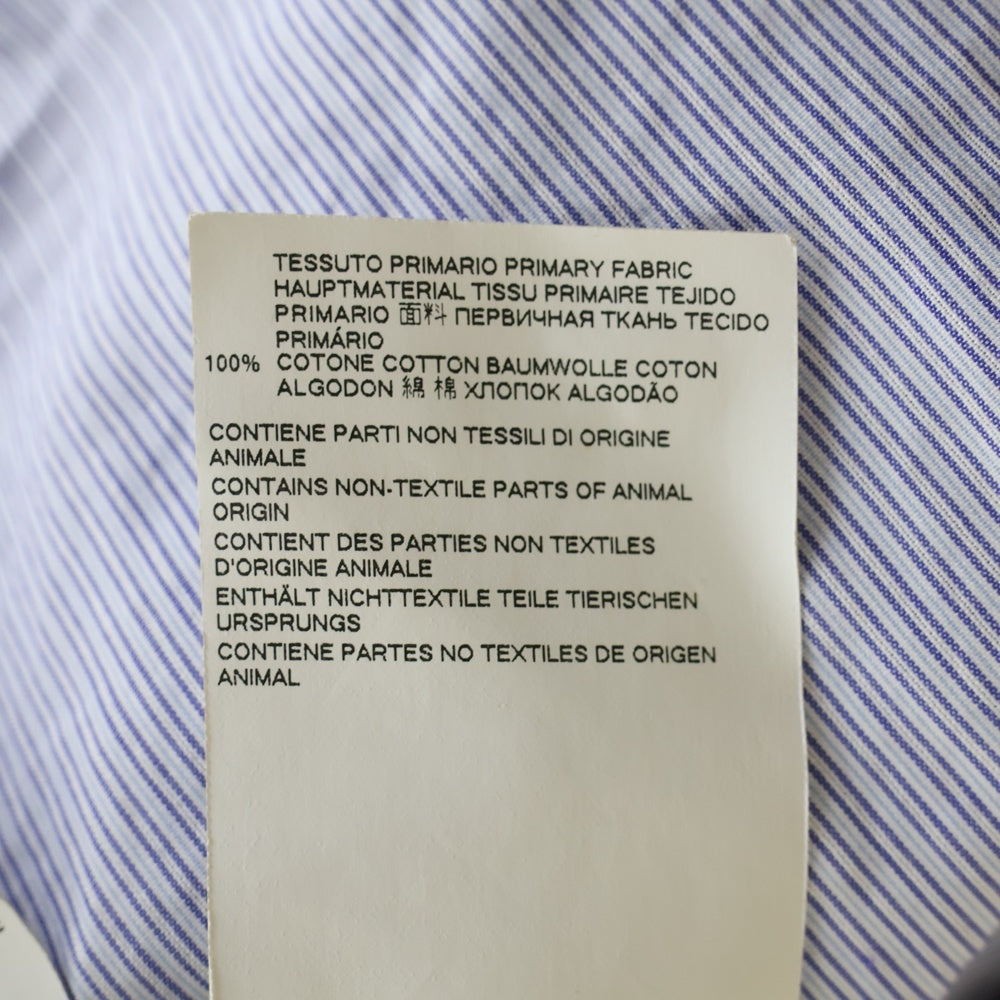 TESSUTO PRIMARIO PRIMARY FABRIC
HAUPTMATERIAL TISSU PRIMAIRE TEJIDO
PRIMARIO 面料 ПЕРВИЧНАЯ ТКАНЬ TECIDO
PRIMÁRIO
100% COTONE COTTON BAUMWOLLE COTON
ALGODON 綿 棉 ХЛОПОК ALGODÃO
CONTIENE PARTI NON TESSILI DI ORIGINE
ANIMALE
CONTAINS NON-TEXTILE PARTS OF ANIMAL
ORIGIN
CONTIENT DES PARTIES NON TEXTILES
D'ORIGINE ANIMALE
ENTHÄLT NICHTTEXTILE TEILE TIERISCHEN
URSPRUNGS
CONTIENE PARTES NO TEXTILES DE ORIGEN
ANIMAL